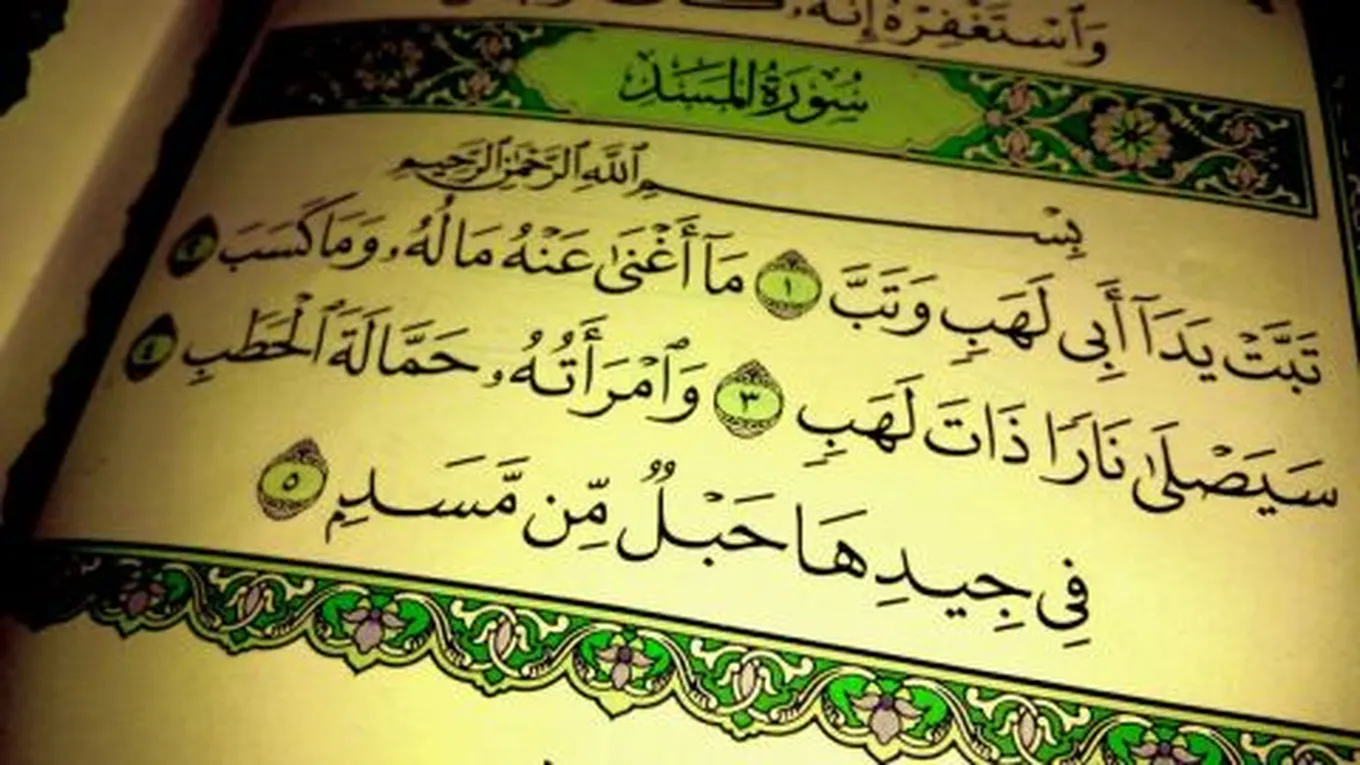 وَٱسْتَغْفِرْهُ إِنَّهُۥ
سُورَةُ المَسَد
بِسْمِ ٱللَّهِ ٱلرَّحْمَٰنِ ٱلرَّحِيمِ
تَبَّتْ يَدَآ أَبِى لَهَبٍ وَتَبَّ ١ مَآ أَغْنَىٰ عَنْهُ مَالُهُۥ وَمَا كَسَبَ ٢
سَيَصْلَىٰ نَارًا ذَاتَ لَهَبٍ ٣ وَٱمْرَأَتُهُۥ حَمَّالَةَ ٱلْحَطَبِ ٤
فِى جِيدِهَا حَبْلٌ مِّن مَّسَدٍۭ ٥